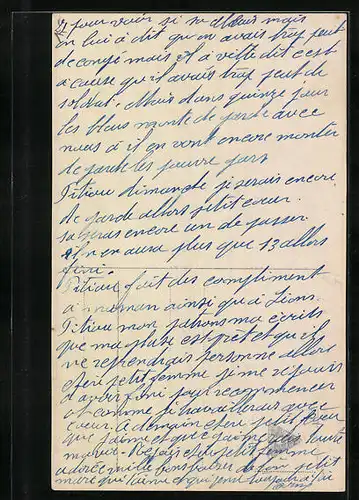 pour voir si sa allais mais
on lui à dit qu'on avais trop peut
de congé mais il à vitte dit c'est
à cause qu'il avais trop peut de
soldat. Mais dans quinze jour
les bleus monte de garde avec
nous à il en vont encore monter
de garde les pauvre gars
Titiou dimanche je serais encore
de garde allors petit cœur
sa seras encore un de passer.
Il n'en auras plus que 13 allors
fini.
Titiou fait des compliment
à maman ainsi qu'à
Titiou mon patrons ma écrits
que ma place est prêt et qu'il
ne reprendrais personne allors
cheri petit femme je me rejouis
d'avoir fini pour recommencer
et comme je travaillerais avec
cœur. à demain cheri petit
que j'aime et que j'aimerais toute
ma vie. petit femme
adorée mille bons baisers de ton petit
que t'aime et qui pense toujours à toi